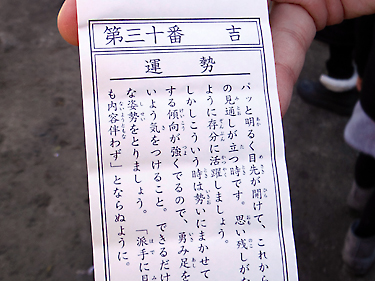 第三十番 吉
運勢
パッと明るく目先が開けて、これから
の見通しが立つ時です。思い残しがな
ように存分に活躍しましょう。
しかしこういう時は勢いにまかせて
する傾向が強くでるので、勇み足を
いよう気をつけること。できるだけ
な姿勢をとりましょう。「派手に見
も内容伴わず」とならぬように。